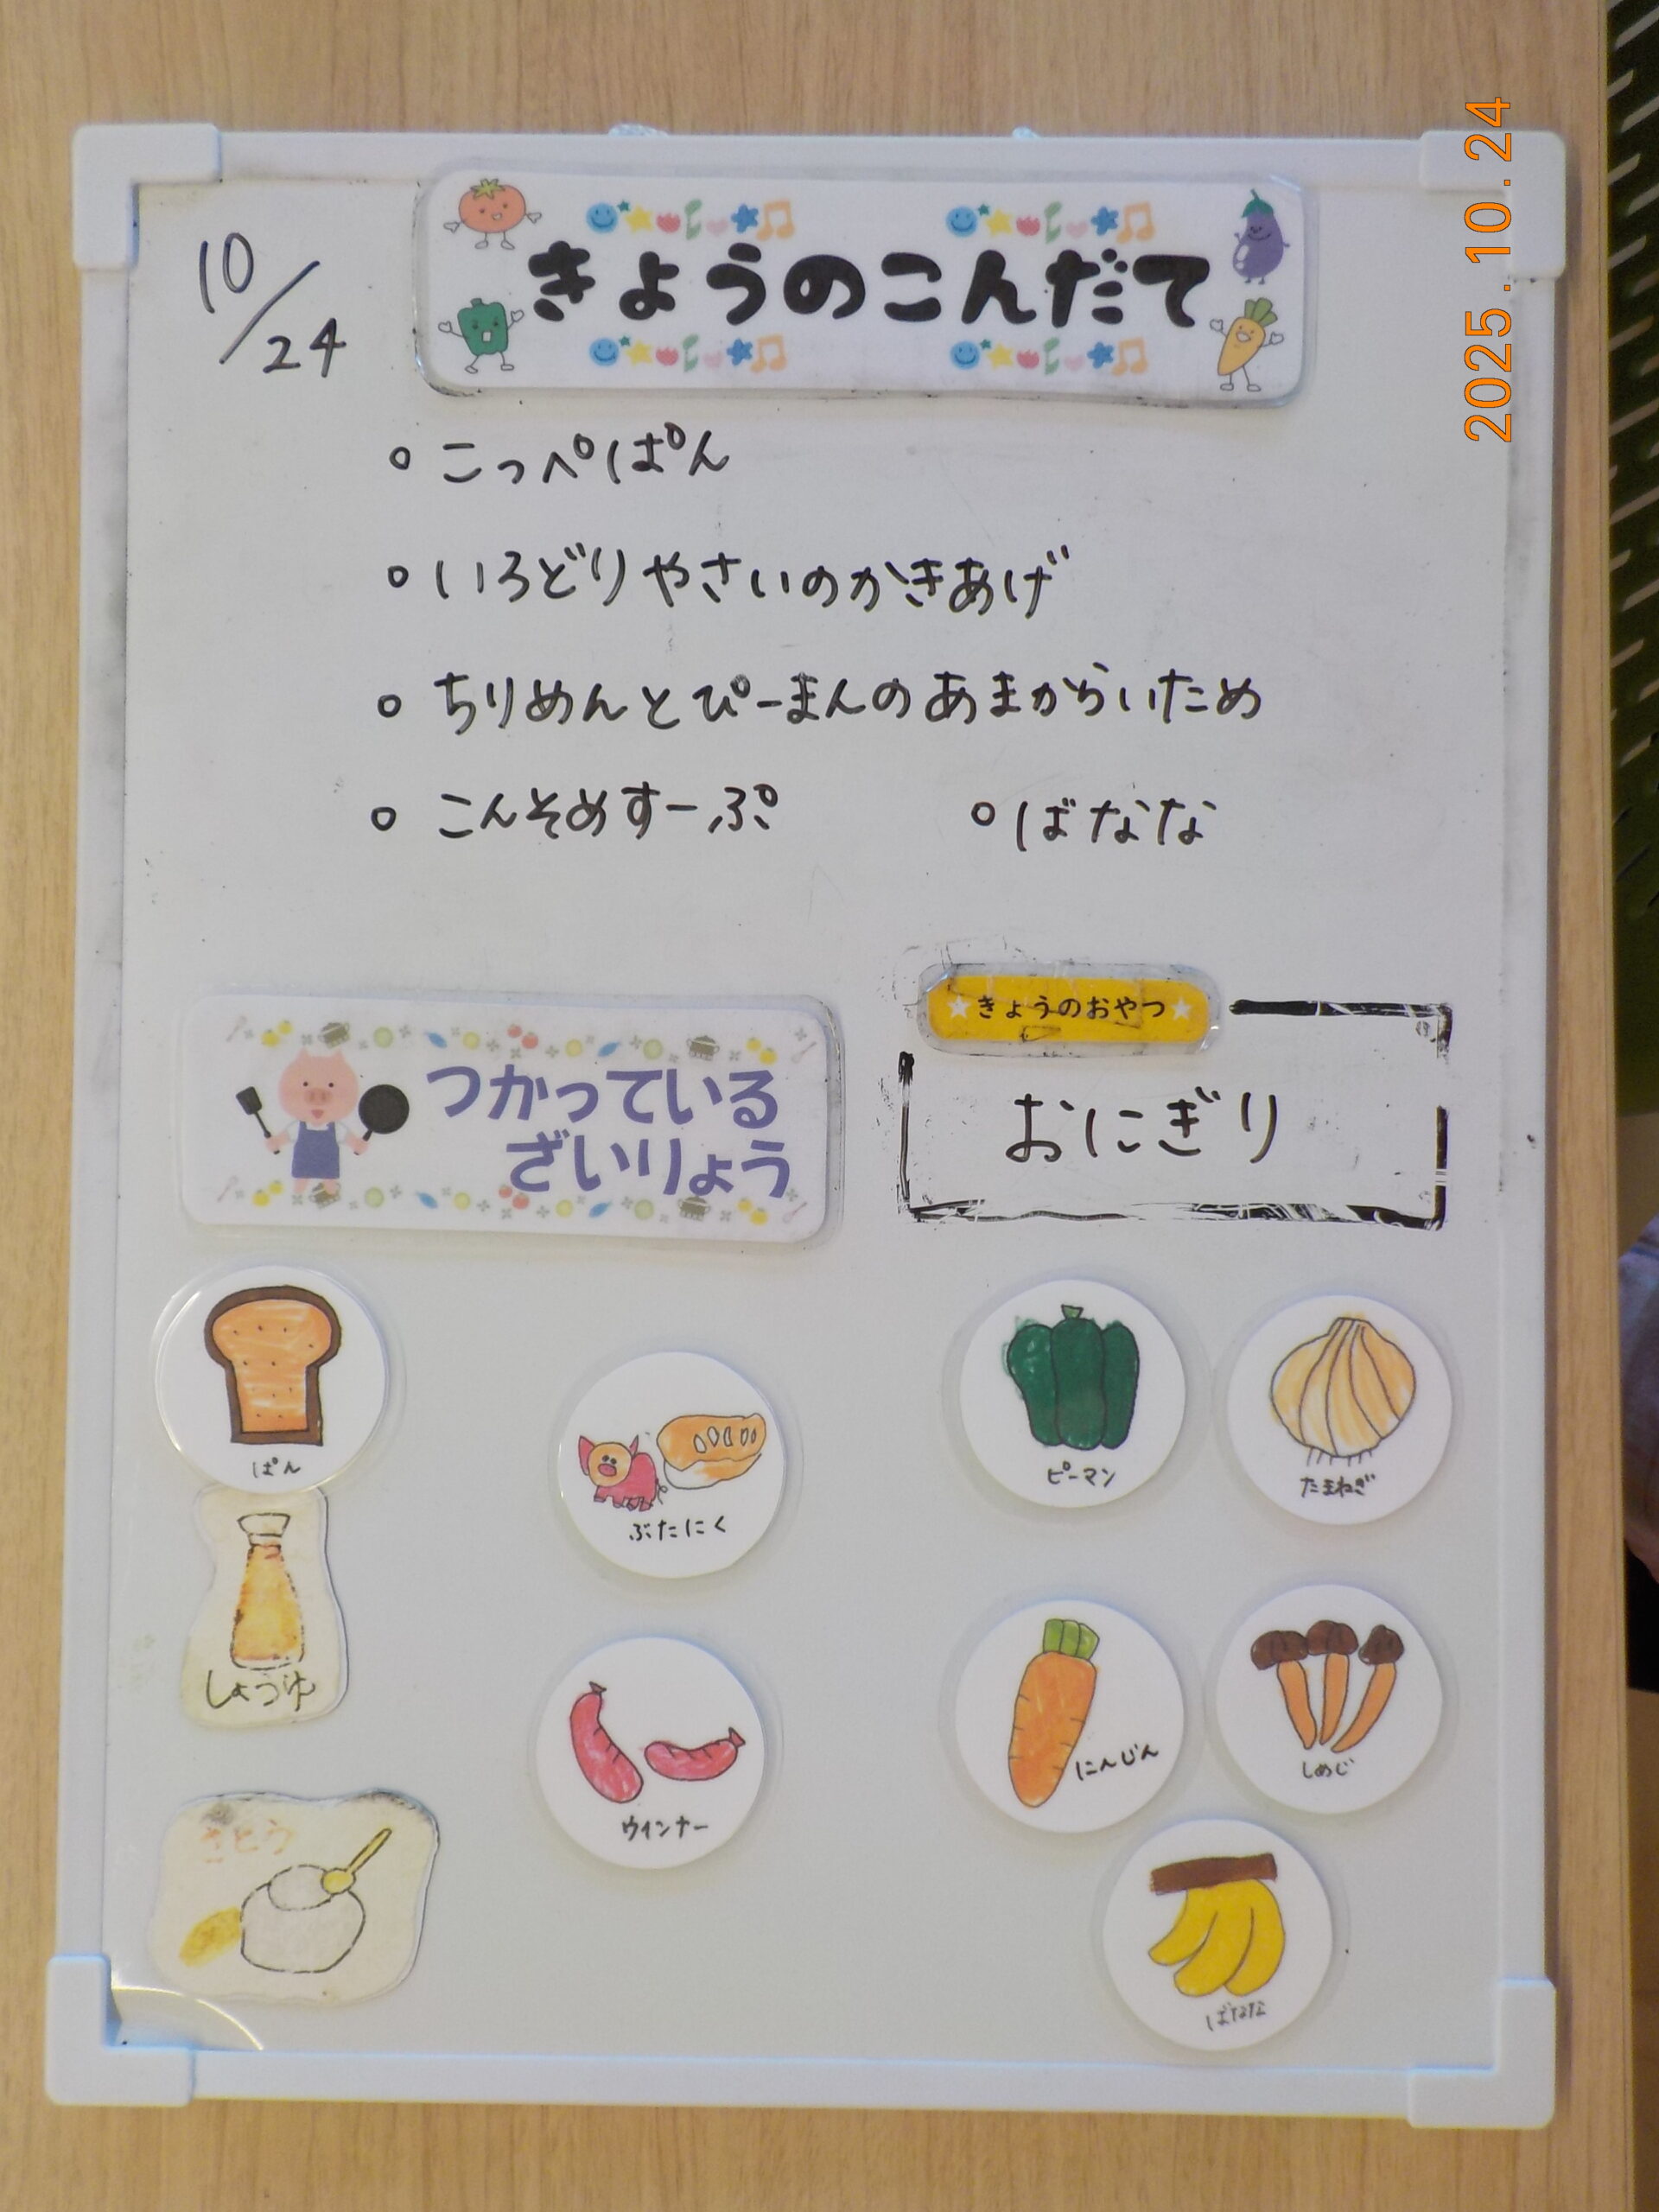 10/24
きょうのこんだて
2025.10.24
○ こっぺぱん
○ いろどりやさいのかきあげ
○ ちりめんとぴーまんのあまからいため
○ こんそめすーぷ ○ ばなな
★きょうのおやつ★
おにぎり
つかっている
ざいりょう
ぱん
ぶたにく
ピーマン
たまねぎ
しょうゆ
ウインナー
にんじん
しめじ
さとう
ばなな